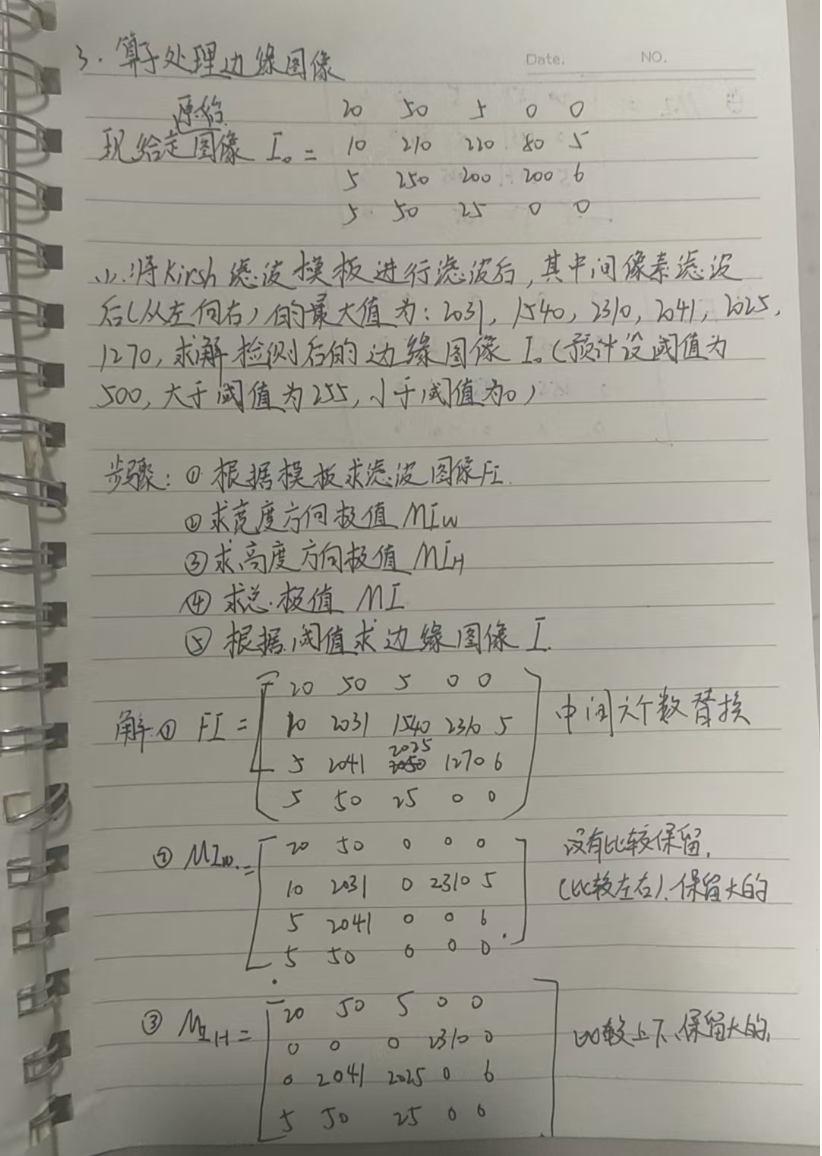 Date. NO.
3. 算子处理边缘图像
原始
现给定图像 I₀ =
20 50 5 0 0
10 210 220 80 5
5 250 200 200 6
5 50 25 0 0
(1). 将Kirsh滤波模板进行滤波后，其中间像素滤波
后(从左向右)的最大值为：2031，1540，2310，2041，2025，
1270，求解检测后的边缘图像 I。(预计设阈值为
500，大于阈值为255，小于阈值为0)
步骤：① 根据模板求滤波图像FI.
② 求宽度方向极值 MIW
③ 求高度方向极值 MIH
④ 求总极值 MI
⑤ 根据阈值求边缘图像 I.
解① FI =
20 50 5 0 0
10 2031 1540 2310 5
5 2041 2025 1270 6
5 50 25 0 0
中间六个数替换
② MIw. =
20 50 0 0 0
10 2031 0 2310 5
5 2041 0 0 6
5 50 0 0 0
没有比较保留.
(比较左右).保留大的
③ MIH =
20 50 5 0 0
0 0 0 2310 0
0 2041 2025 0 6
5 50 25 0 0
比较上下、保留大的.